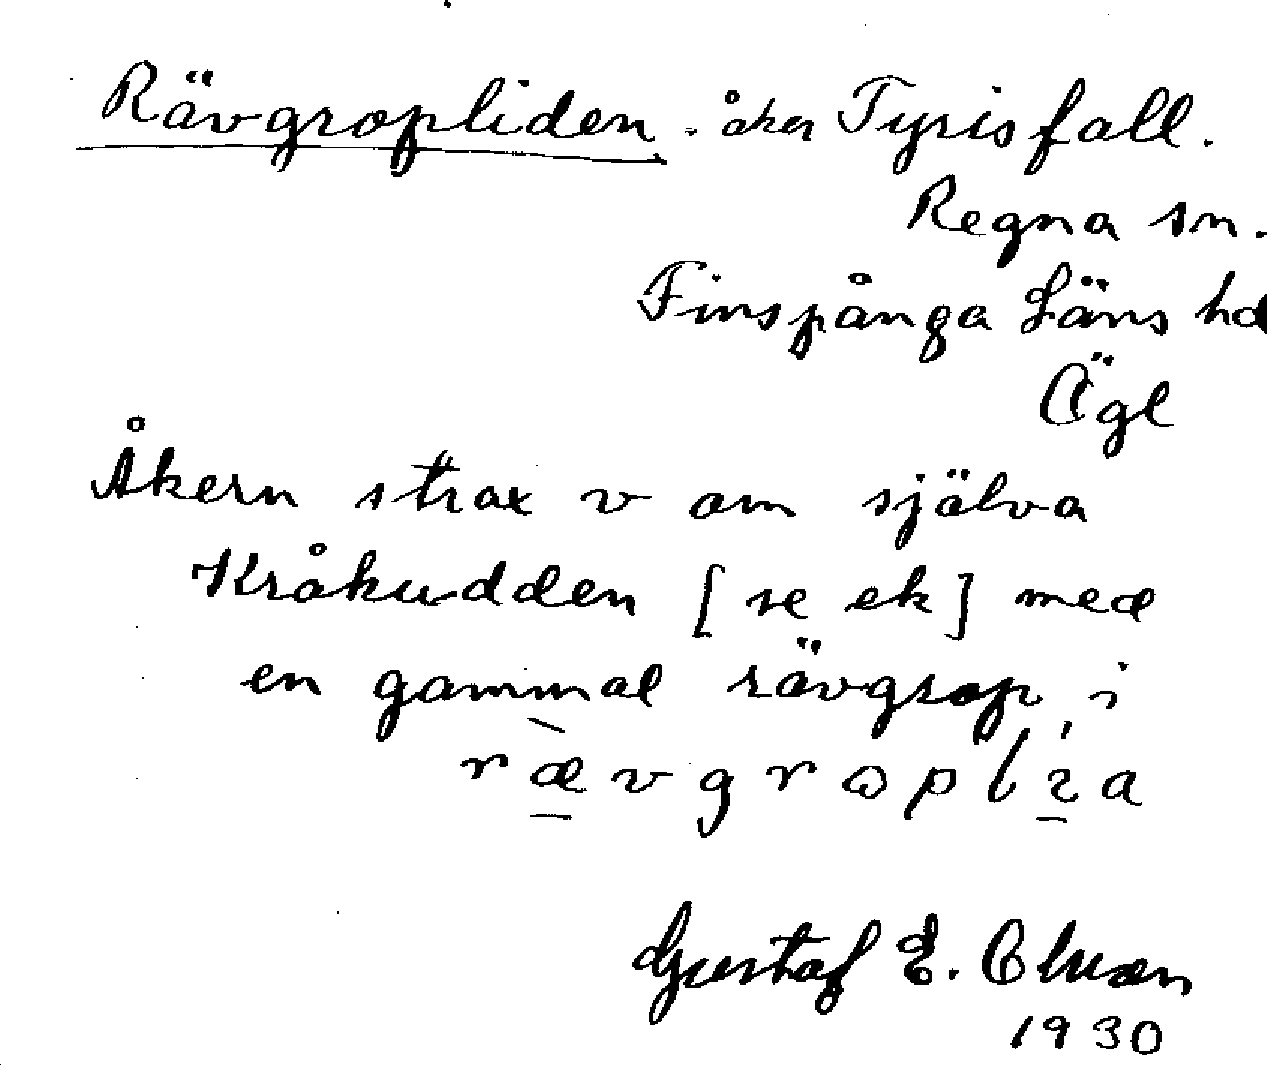 Rävgropliden. åker Tyrisfall.
Regna sn.
Finspånga Läns hd
Ögl
Åkern strax v om själva
Kråkudden [se ek] med
en gammal rävgrop, i
Gustaf E.
1930